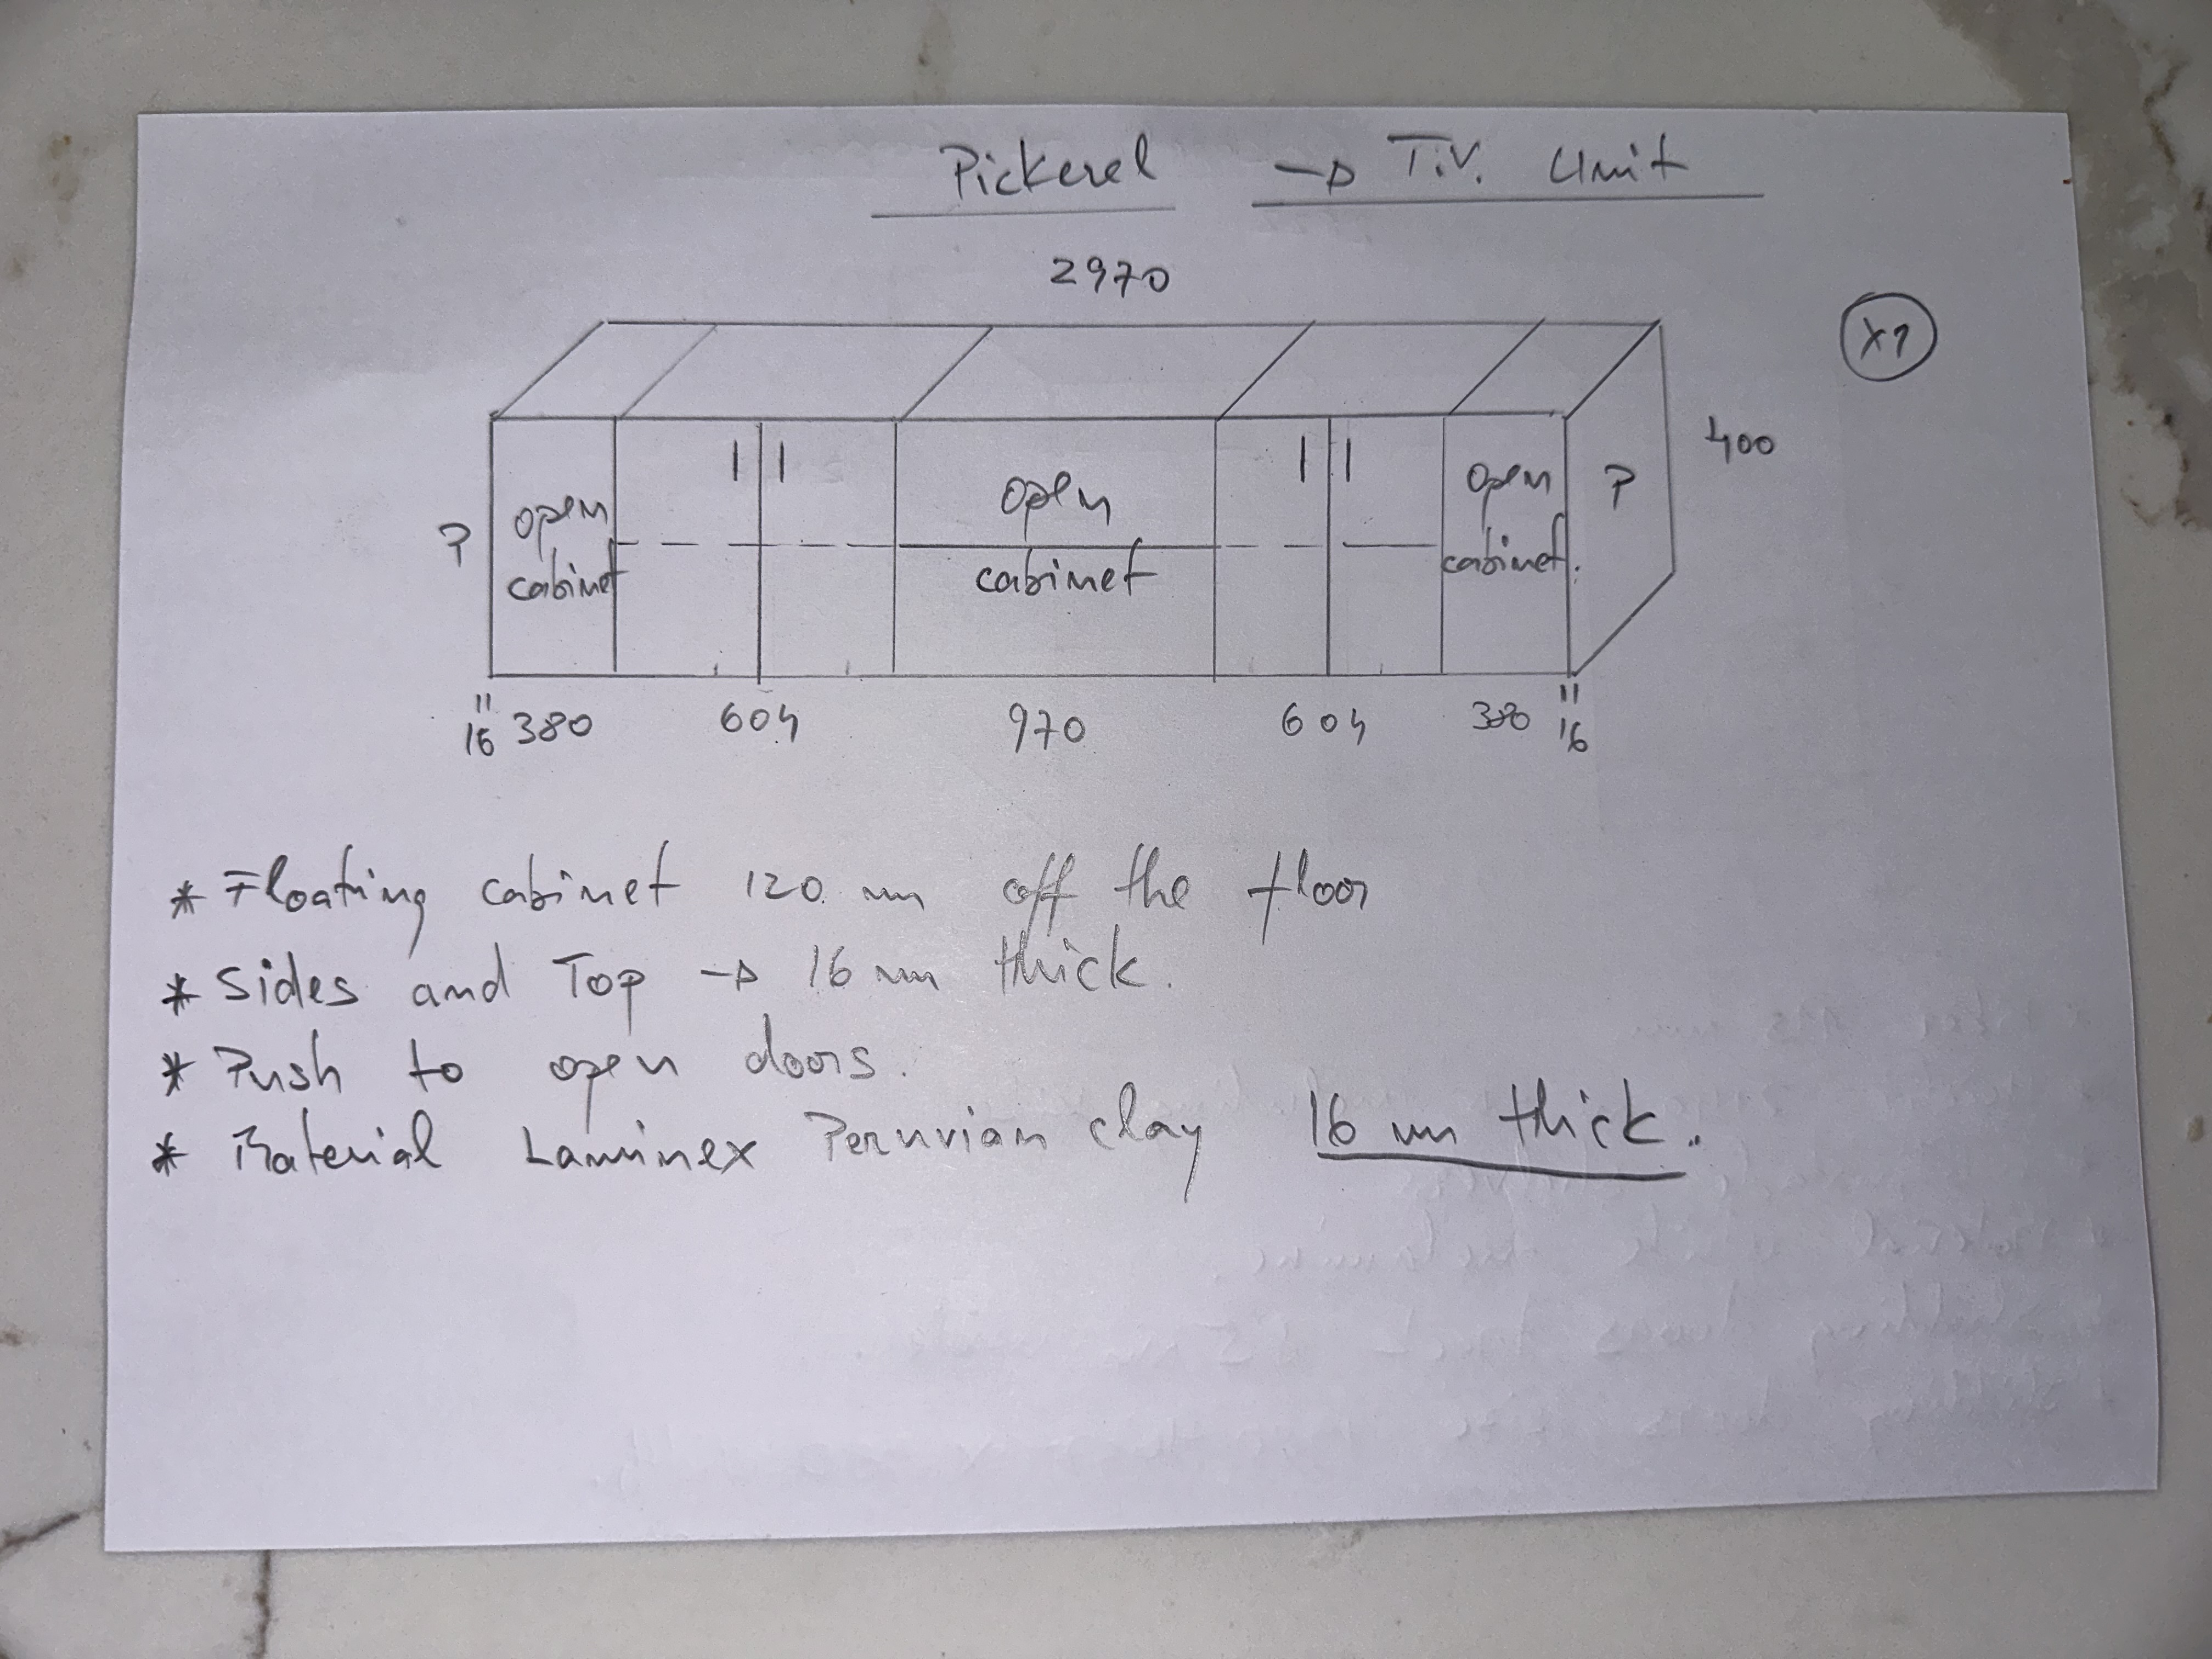 Pickerel → T.V. Unit
2970
x1
400
P open cabinet
open cabinet
open cabinet.
P
16 380 604 970 604 380 16
* Floating cabinet 120 mm off the floor
* Sides and Top → 16 mm thick.
* Push to open doors.
* Material Laminex Peruvian clay 16 mm thick.